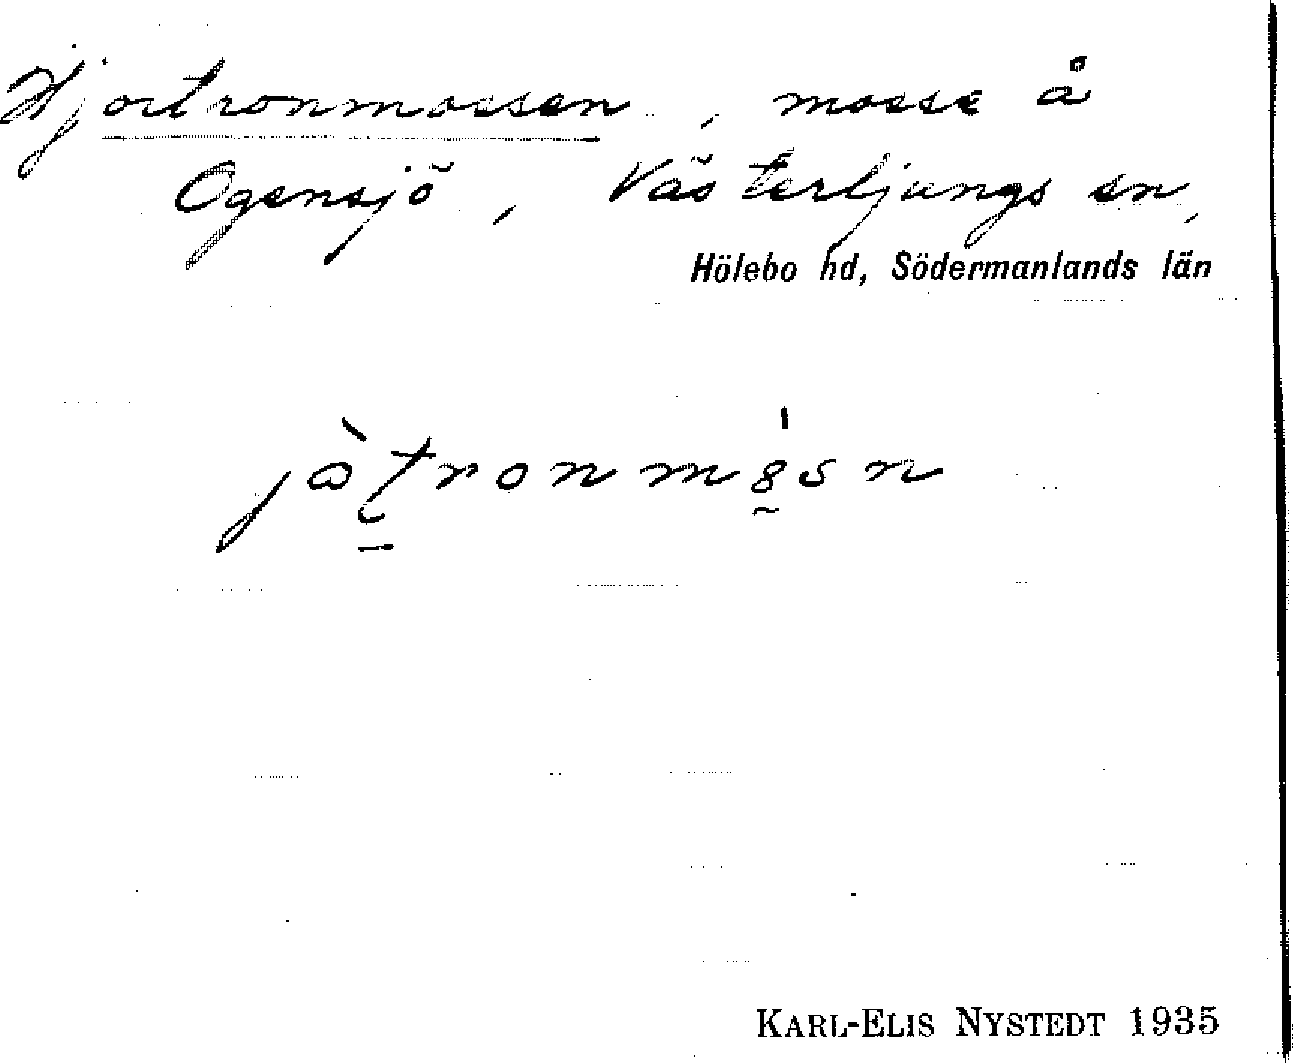 Hjortronmossen, mosse å
Ogensjö, Västerljungs sn,
Hölebo hd, Södermanlands län
KARL-ELIS NYSTEDT 1935